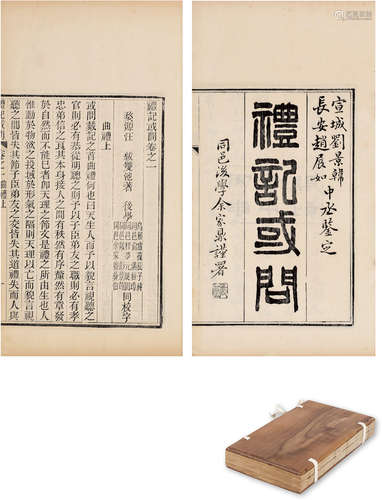 宣城劉景韓
長安趙展如
中丞鑒定
禮記或問
同邑後學余家鼎謹署
禮記或問卷之一
婺源汪 紱雙池著 後學
同校字
曲禮上
或問戴記之首曲禮何也曰天生人而予以貌言視聽之
官則必有恭從明聰之則予以子臣弟友之職則必有孝
忠弟信之衷其本身接人之間有秩然有序粲然有章發
於自然而不能已者卽天理之節文是禮之所由生也人
惟動於物欲之投間於形氣之隔則天理以亡而貌言視
聽之間皆失其節子臣弟友之交皆失其道禮失而人與